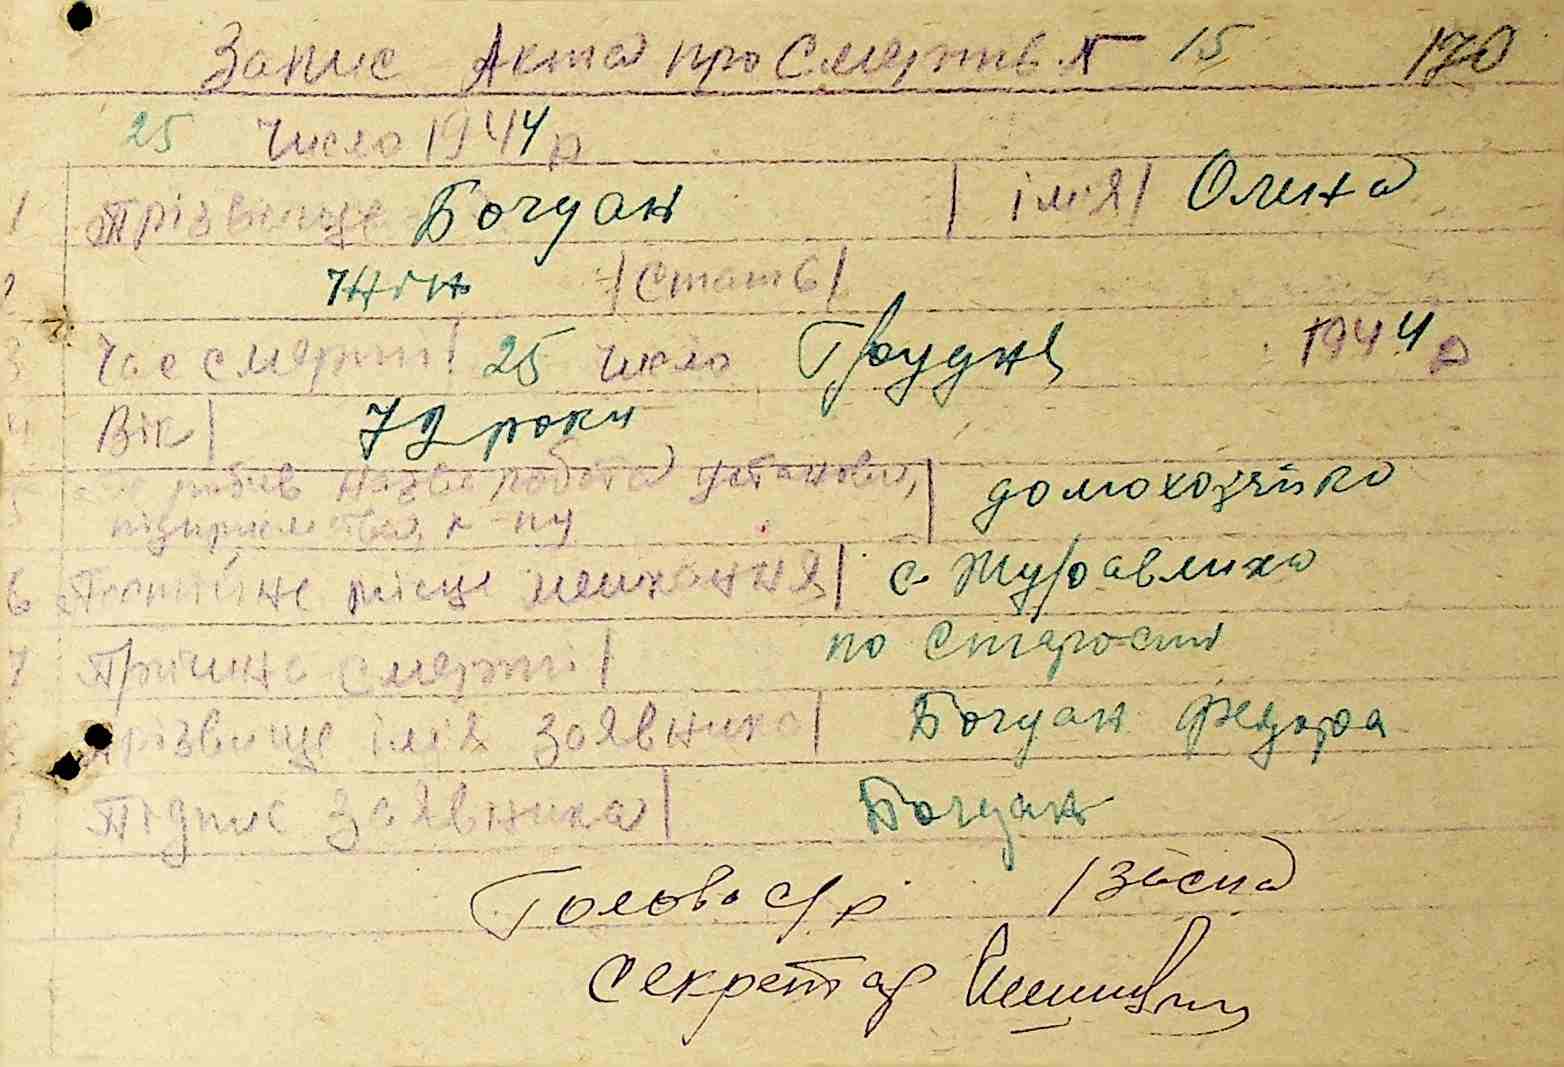 Запис Акта про Смерть № 15 170
25 Число 1944 р
1 Прізвище Богдан | ім'я | Олена
2 жін | Стать |
3 Час смерти | 25 число Грудня 1944 р
4 Вік | 72 роки
5 робив назва робота установи, | домохозяйка
підприємства, к-пу
6 Постійне місце мешкання | с. Журавлиха
7 Причина смерті | по старости
прізвище ім'я заявника | Богдан Федора
Підпис Заявника | Богдан
Голова с/р
Секретар